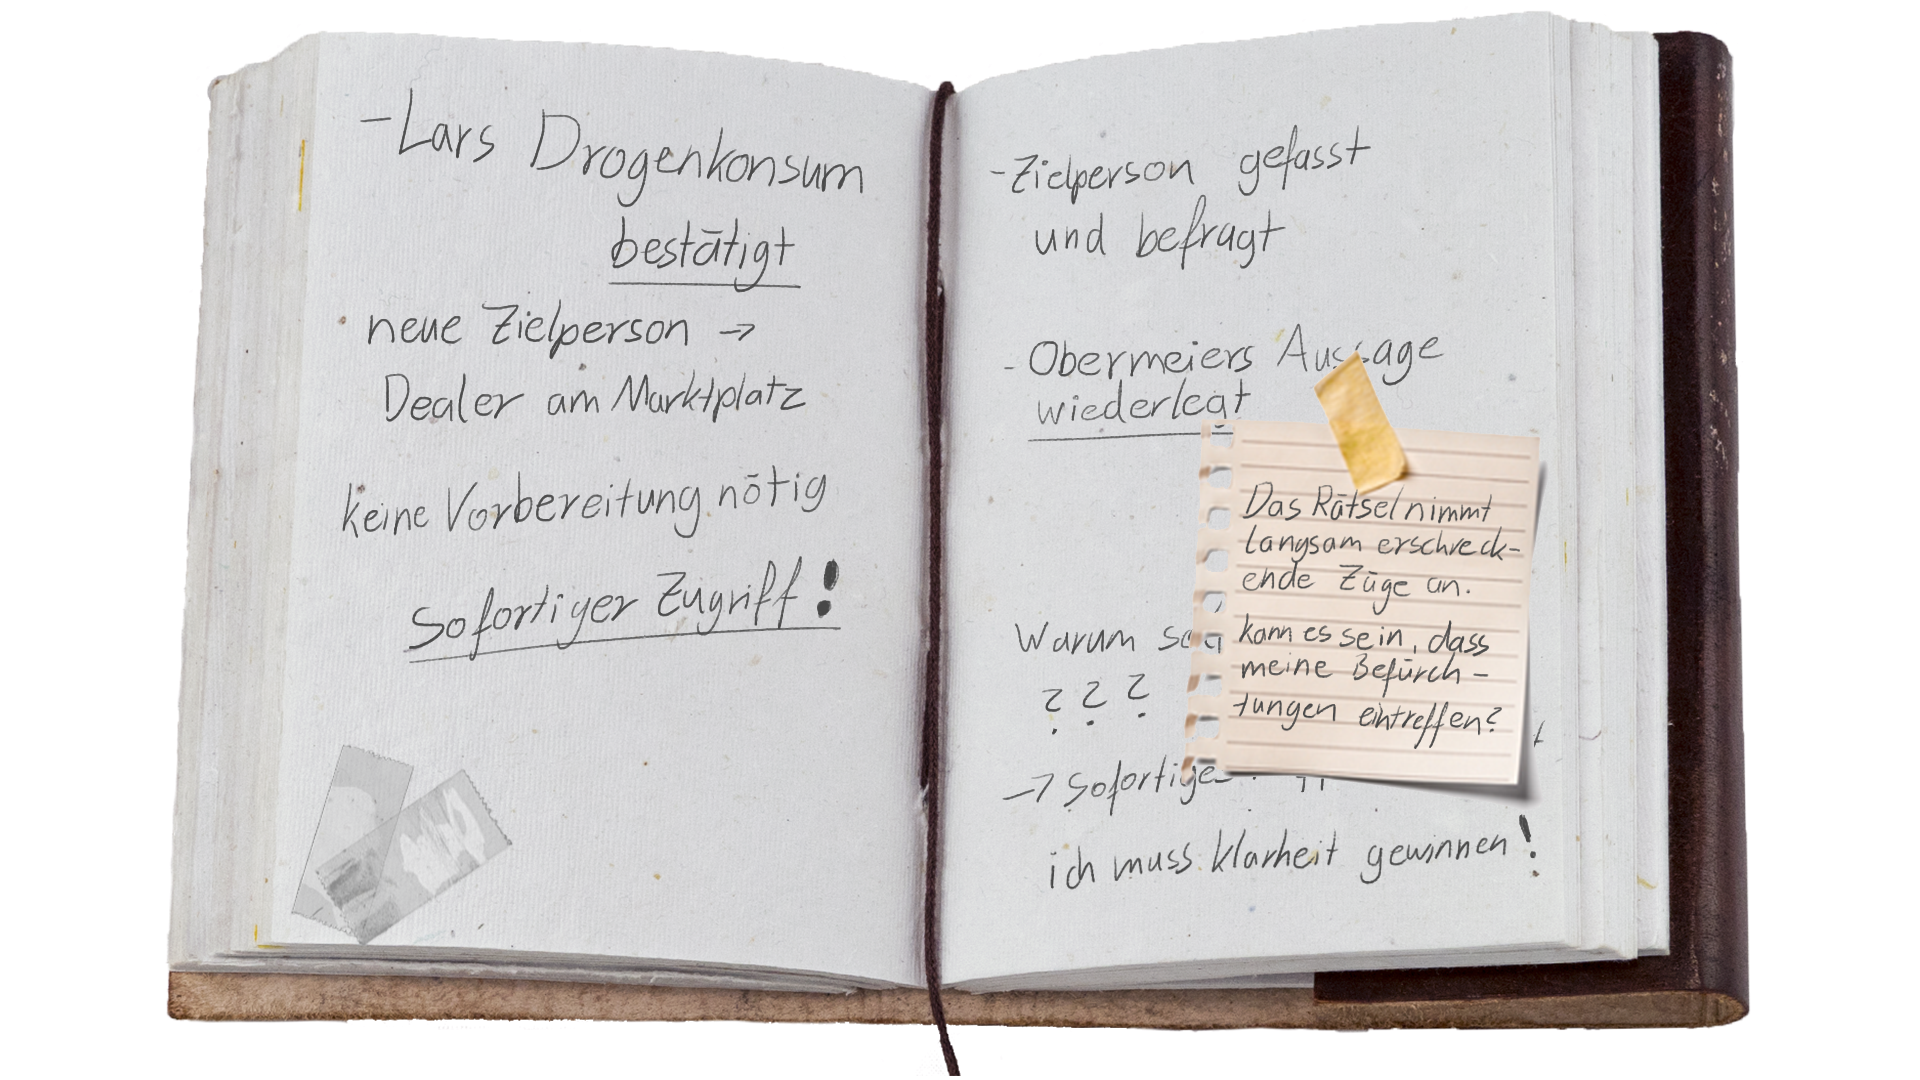 - Lars Drogenkonsum
bestätigt
neue Zielperson →
Dealer am Marktplatz
keine Vorbereitung nötig
Sofortiger Zugriff!
- Zielperson gefasst
und befragt
- Obermeiers Aussage
wiederlegt
Warum
???
→ Sofortiger
ich muss klarheit gewinnen!
Das Rätsel nimmt
langsam erschreck-
ende Züge an.
kann es sein, dass
meine Befürch-
tungen eintreffen?